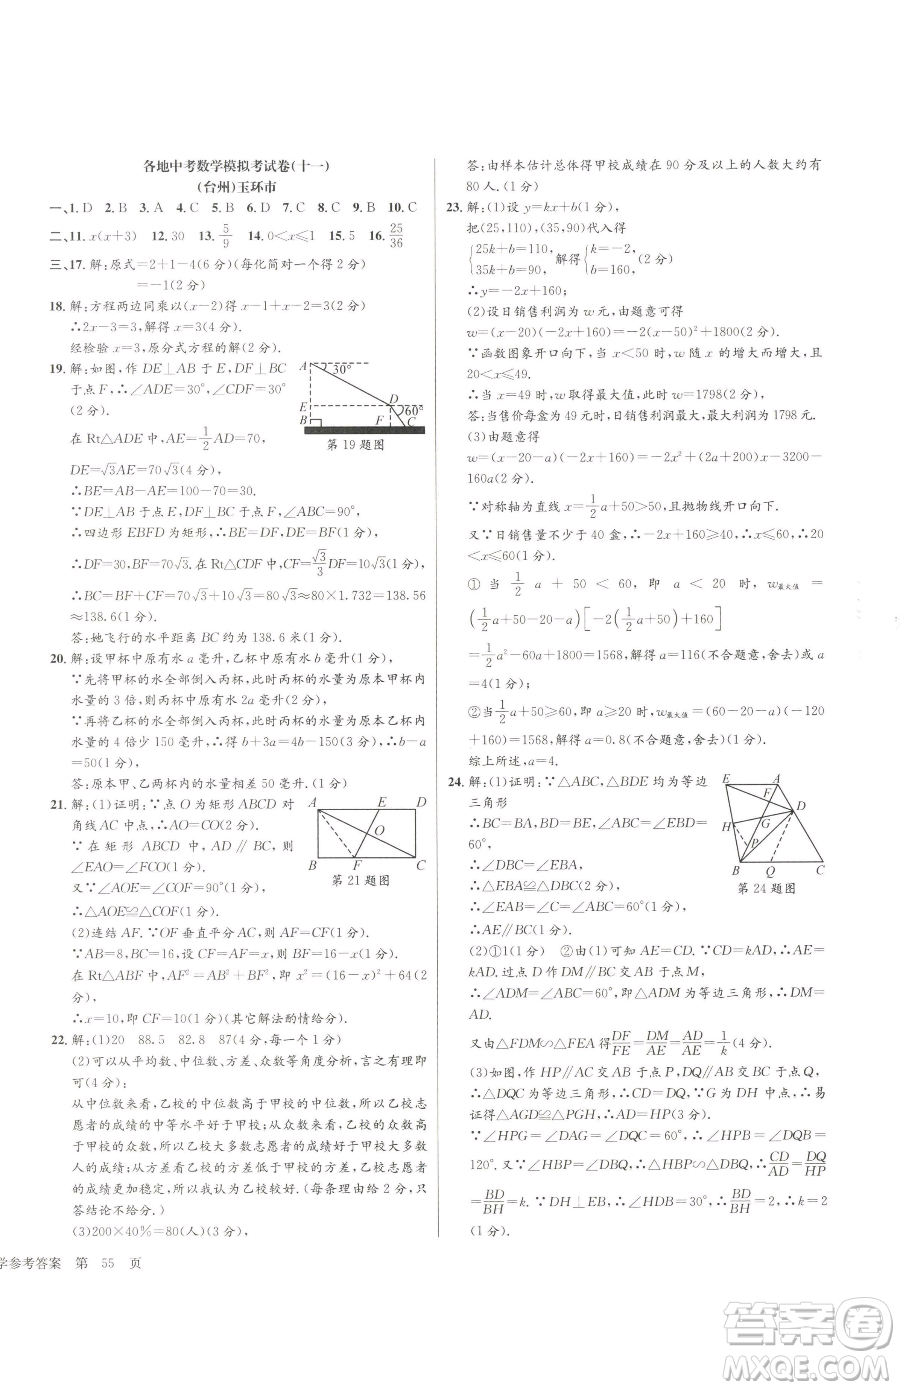 各地中考数学模拟考试卷(十一)
(台州)玉环市
一、1. D 2. B 3. A 4. C 5. B 6. D 7. C 8. C 9. B 10. C
二、11. x(x+3) 12. 30 13. 5/9 14. 0<x≤1 15. 5 16. 25/36
三、17. 解:原式=2+1-4(6分)(每化简对一个得2分)
=-1(2分)
18. 解:方程两边同乘以(x-2)得x-1+x-2=3(3分)
∴2x-3=3,解得x=3(4分).
经检验x=3,原分式方程的解(1分).
19. 解:如图,作DE⊥AB于E,DF⊥BC
于点F,∴∠ADE=30°,∠CDF=30°
(2分)
在Rt△ADE中,AE=1/2AD=70,
DE=√3AE=70√3(1分)
∴BE=AB-AE=100-70=30.
∵DE⊥AB于点E,DF⊥BC于点F,∠ABC=90°,
∴四边形EBFD为矩形,∴BE=DF,DE=BF(1分)
∴DF=30,BF=70√3,在Rt△CDF中,CF=√3/3DF=
10√3(1分),
∴BC=BF+CF=70√3+10√3=80×1.732=138.56
≈138.6(1分).
答:她飞行的水平距离BC约为138.6米(1分).
A 30° E D 60° B F C
第19题图
20. 解:设甲杯中原有水a毫升,乙杯中原有水b毫升(1分)
∵先将甲杯的水全部倒入丙杯,此时丙杯的水量为原本甲杯内
水量的3倍,则丙杯中原有水2a毫升(2分)
∵再将乙杯的水全部倒入丙杯,此时丙杯的水量为原本乙杯内
水量的4倍少150毫升,∴b+3a=4b-150(3分),∴b-a
=50(1分).
答:原本甲、乙两杯内的水量相差50毫升.(1分)
21. 解:(1)证明:∵点O为矩形ABCD对
角线AC中点,∴AO=CO(2分)
∵在矩形ABCD中,AD∥BC,∴
∠EAO=∠FCO(2分)
又∵∠AOE=∠COF=90°(1分),
∴△AOE≌△COF(1分).
A E D O B F C
第21题图
(2)连结AF.∵OF垂直平分AC,∴AF=CF(1分)
∵AB=8,BC=16,设CF=x,则BF=16-x(1分)
在Rt△ABF中,AF²=AB²+BF²,即x²=(16-x)²+64(2
分),
∴x=10,即CF=10(1分)(其它解法酌情给分).
22. 解:(1)20 88.5 82.8 87(4分,每一个1分)
(2)可以从平均数、中位数、方差、众数等角度分析,言之有理即
可(4分):
从中位数来看,乙校的中位数高于甲校的中位数,则乙校志
愿者的成绩的中等水平好于甲校;从众数来看,乙校的众数
高于甲校的众数,则乙校大多数人的成绩好于甲校大多数
人的成绩;从方差来看,乙校的方差低于甲校的方差,则乙
校的成绩更加稳定,所以乙校的成绩更好.(每条给2分,只
答结论不给分.)
(3)200×40%=80(人)(1分)
答:由样本估计总体得甲校成绩在90分及以上的人数大约有
80人.(1分)
23. 解:(1)设y=kx+b(1分),
把(25,110),(35,90)代入得
{25k+b=110, 35k+b=90, 解得{k=-2, b=160,(2分)
∴y=-2x+160(1分);
(2)设日销售利润为w元,由题意可得
w=(x-20)(-2x+160)=-2x²+200x-3200(2分).
∵函数图象开口向下,当x<50时,w随x的增大而增大,且
20<x≤49(1分).
∴当x=49时,w取得最大值,为w=1798(2分).
答:当售价每盒为49元时,日销售利润最大,最大为1798元.
(3)由题意得
w=(x-20-a)(-2x+160)=-2x²+(200+2a)x-3200-
160a(1分).
∵对称轴为直线x=1/2a+50>50,且抛物线开口向下.
又∵日销售量不少于40盒,∴-2x+160≥40,∴x≤60,∴20
<x≤60(1分).
①当1/2a+50<60,即a<20时,w最大值=
(1/2a+50-20-a)[-2(1/2a+50)+160]
=1/2a²-60a+1800=1568,解得a=116(不合题意,舍去)或a
=4(1分);
②当1/2a+50≥60,即a≥20时,w最大值=(60-20-a)(-120
+160)=1568,解得a=0.8(不合题意,舍去).
综上所述,a=4(1分).
24. 解:(1)证明:∵△ABC,△BDE均为等边
三角形
∴BC=BA,BD=BE,∠ABC=∠EBD=
60°(1分),
∴∠DBC=∠EBA,
∴△EBA≌△DBC(2分),
∴∠EAB=∠C=∠ABC=60°(1分),
∴AE∥BC(1分).
E A F D H G P B Q C
第24题图
(2)①1(1分) ②由(1)可知AE=CD.∵CD=kAD,∴AE=
kAD.过点D作DM∥BC交EF于点M,
∴∠ADM=∠ABC=60°,即△ADM为等边三角形,∴DM=
AD.
又由△FDM∽△FEA得DF/FE=DM/AE=AD/AE=1/k(4分)
(3)如图,作HP∥AC交AG于点P,DQ∥AB交BC于点Q,
∴△DQC为等边三角形,∴CD=DQ∵G为DH中点,∴易
证得△AGD≌△PGH,∴AD=HP(2分).
∵∠HPG=∠DAG=∠DQC=60°,∴∠HPB=∠DQB=
120°.又∵∠HBP=∠DBQ,∴△HBP∽△DBQ,∴CD/AD=DQ/HP
=BD/BH=k.∵DH⊥EB,∴∠HDB=30°,∴BD/BH=2,∴k=2
(1分).
学参考答案 第 55 页
答案圈
MXQE.COM